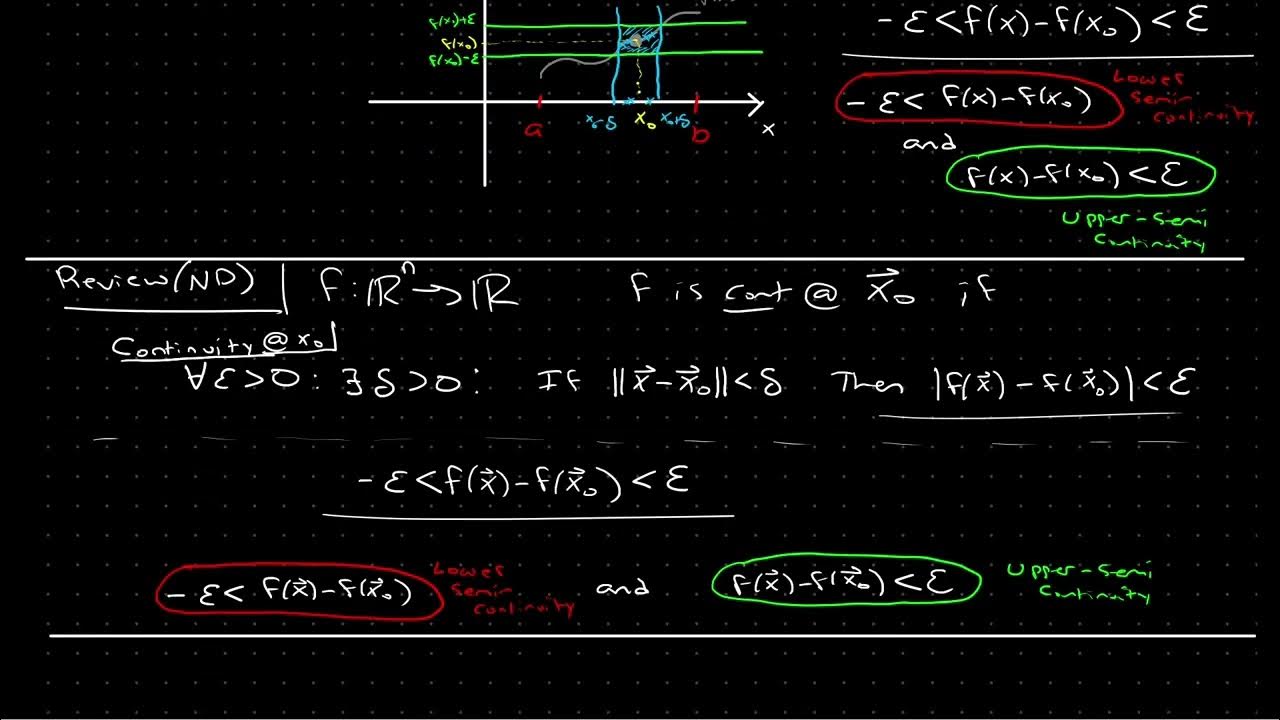 f(x₀)+ε
f(x₀)
f(x₀)-ε
a x₀-δ x₀ x₀+δ b x
- ε < f(x) - f(x₀) < ε
- ε < f(x) - f(x₀)
Lower
Semi
Continuity
and
f(x) - f(x₀) < ε
Upper-Semi
Continuity
Review (ND) f: ℝⁿ → ℝ f is cont @ x⃗₀ if
Continuity @ x₀
∀ ε > 0 : ∃ δ > 0 : If ||x⃗ - x⃗₀|| < δ Then |f(x⃗) - f(x⃗₀)| < ε
- ε < f(x⃗) - f(x⃗₀) < ε
- ε < f(x⃗) - f(x⃗₀)
Lower
Semi
Continuity
and
f(x⃗) - f(x⃗₀) < ε
Upper-Semi
Continuity